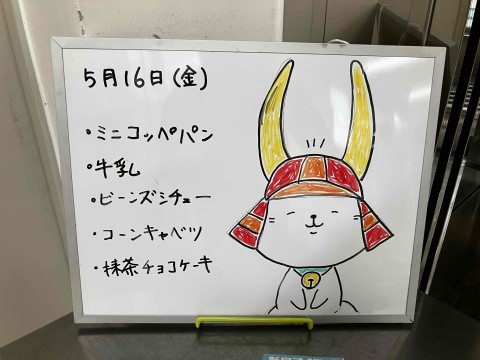 5月16日(金)
・ミニコッペパン
・牛乳
・ビーンズシチュー
・コーンキャベツ
・抹茶チョコケーキ